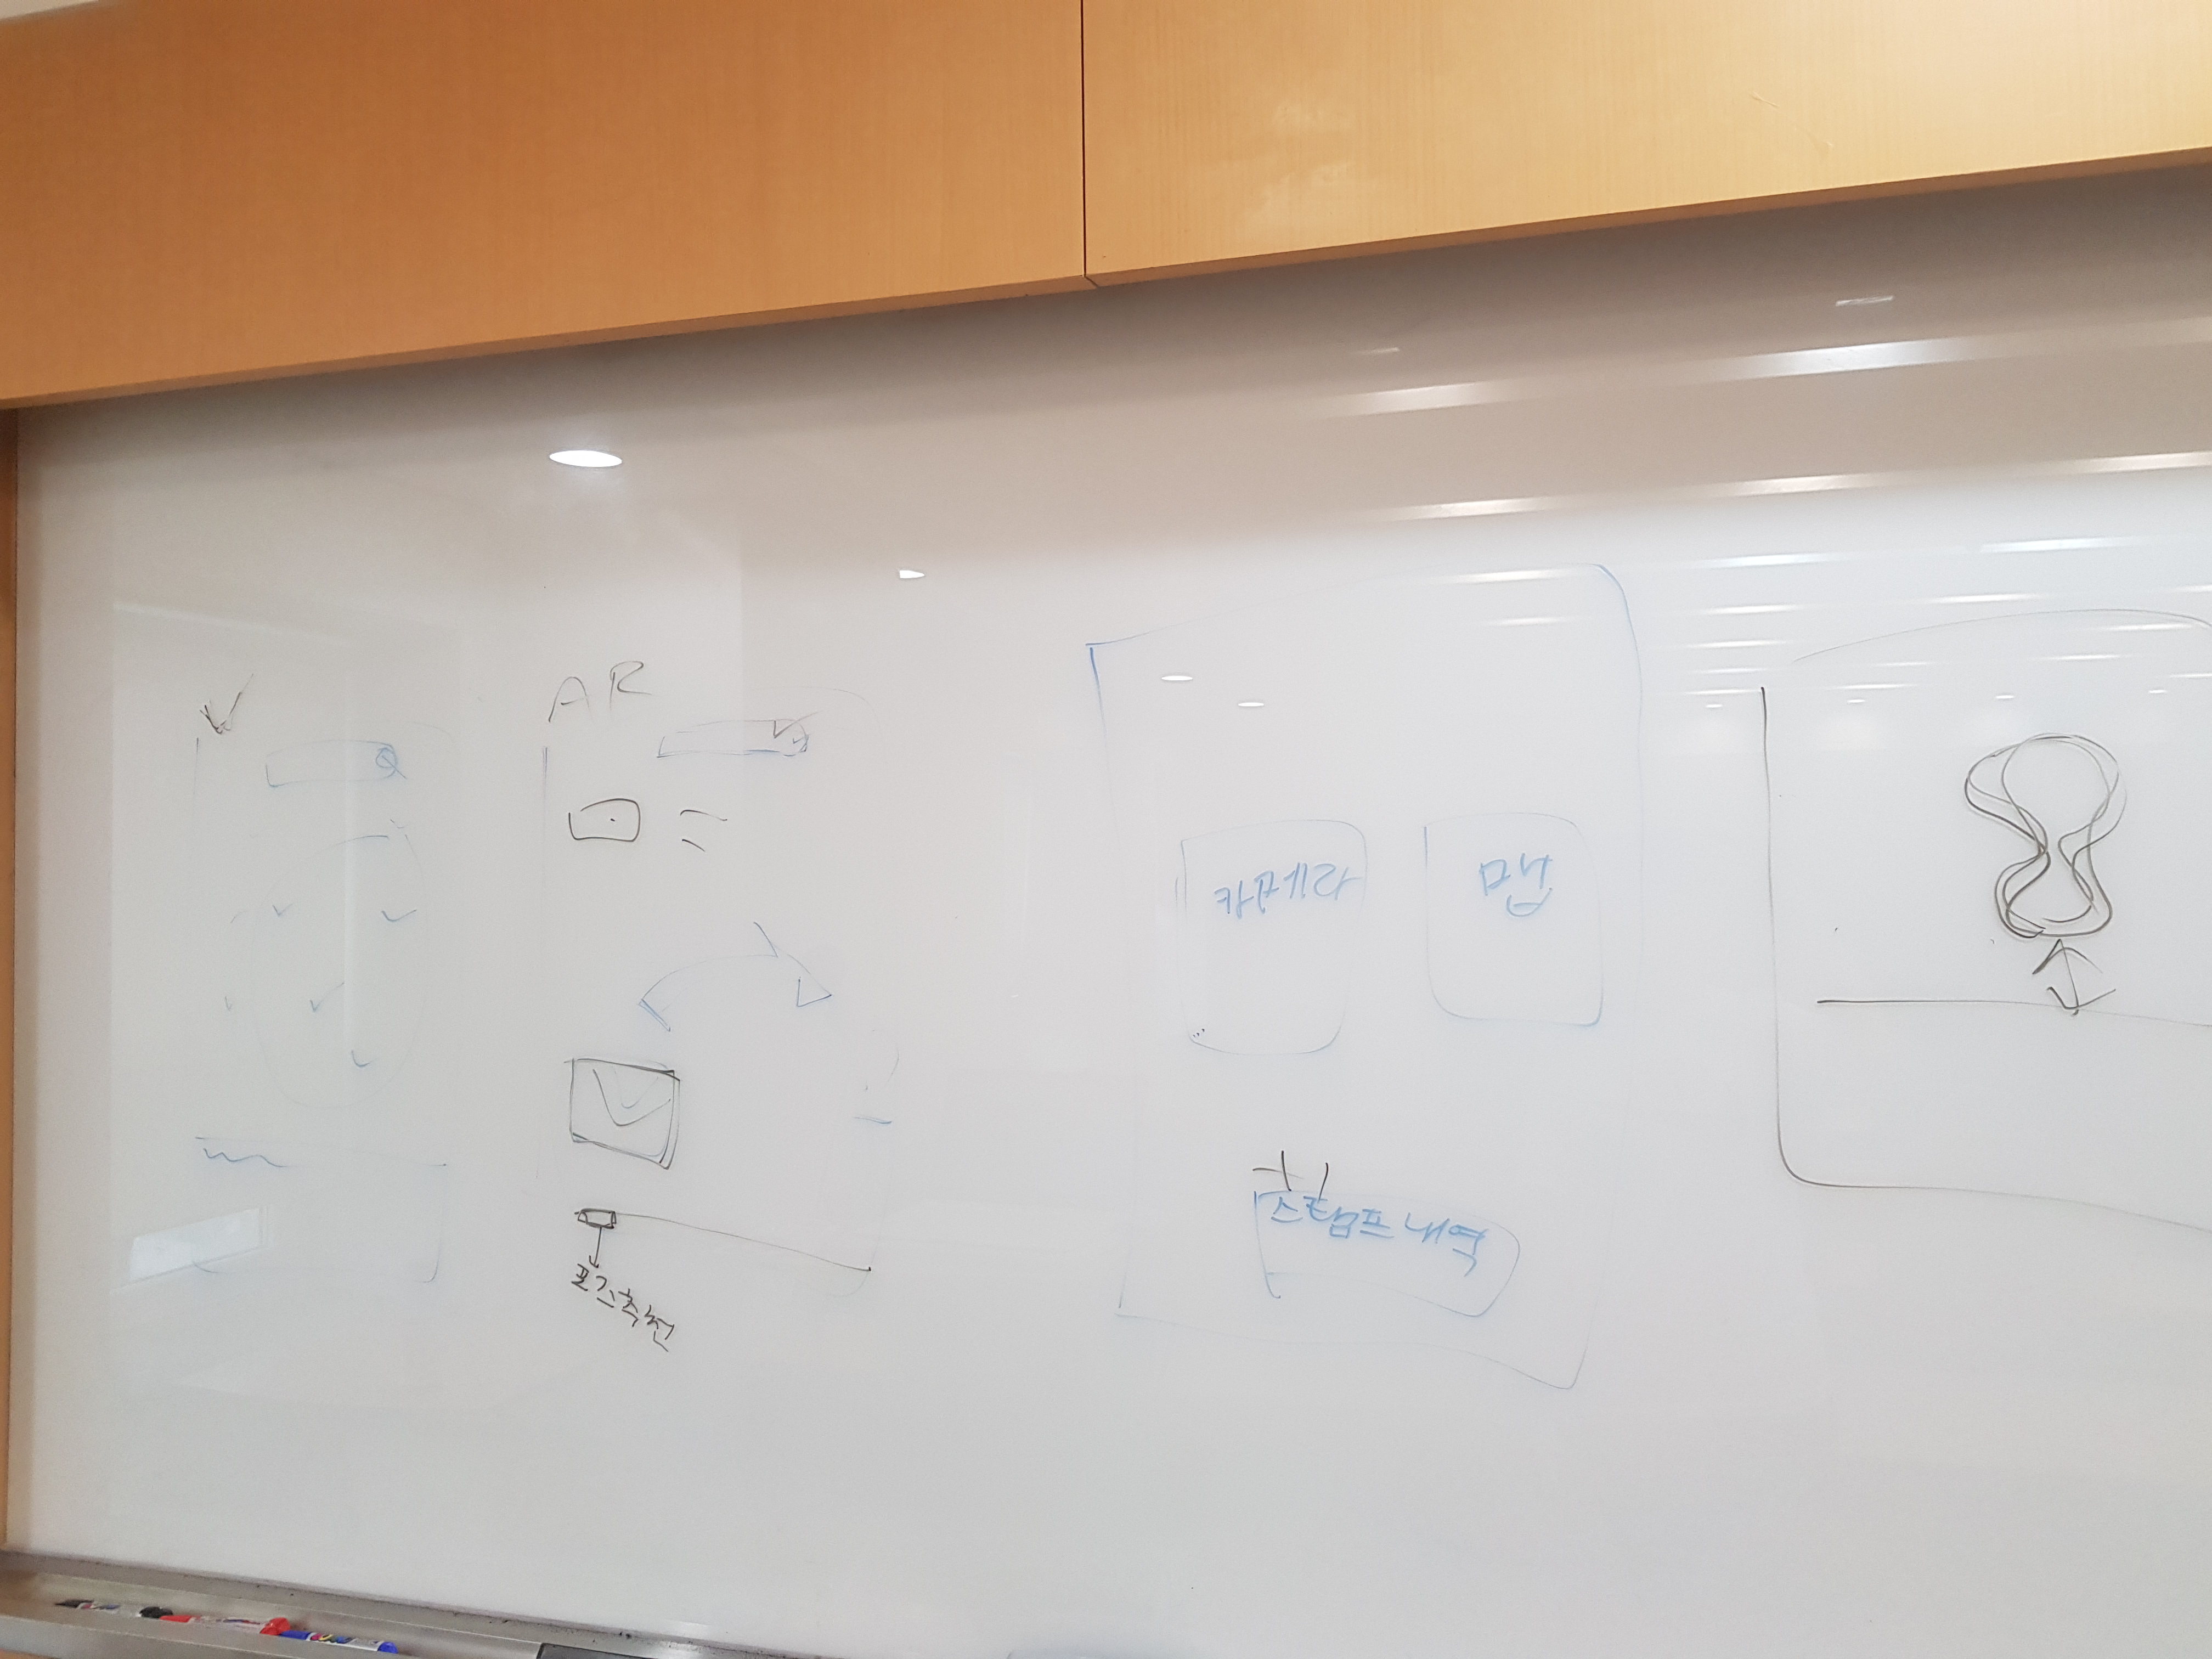 AR
포즈추천
카메라
맵
스탬프 내역